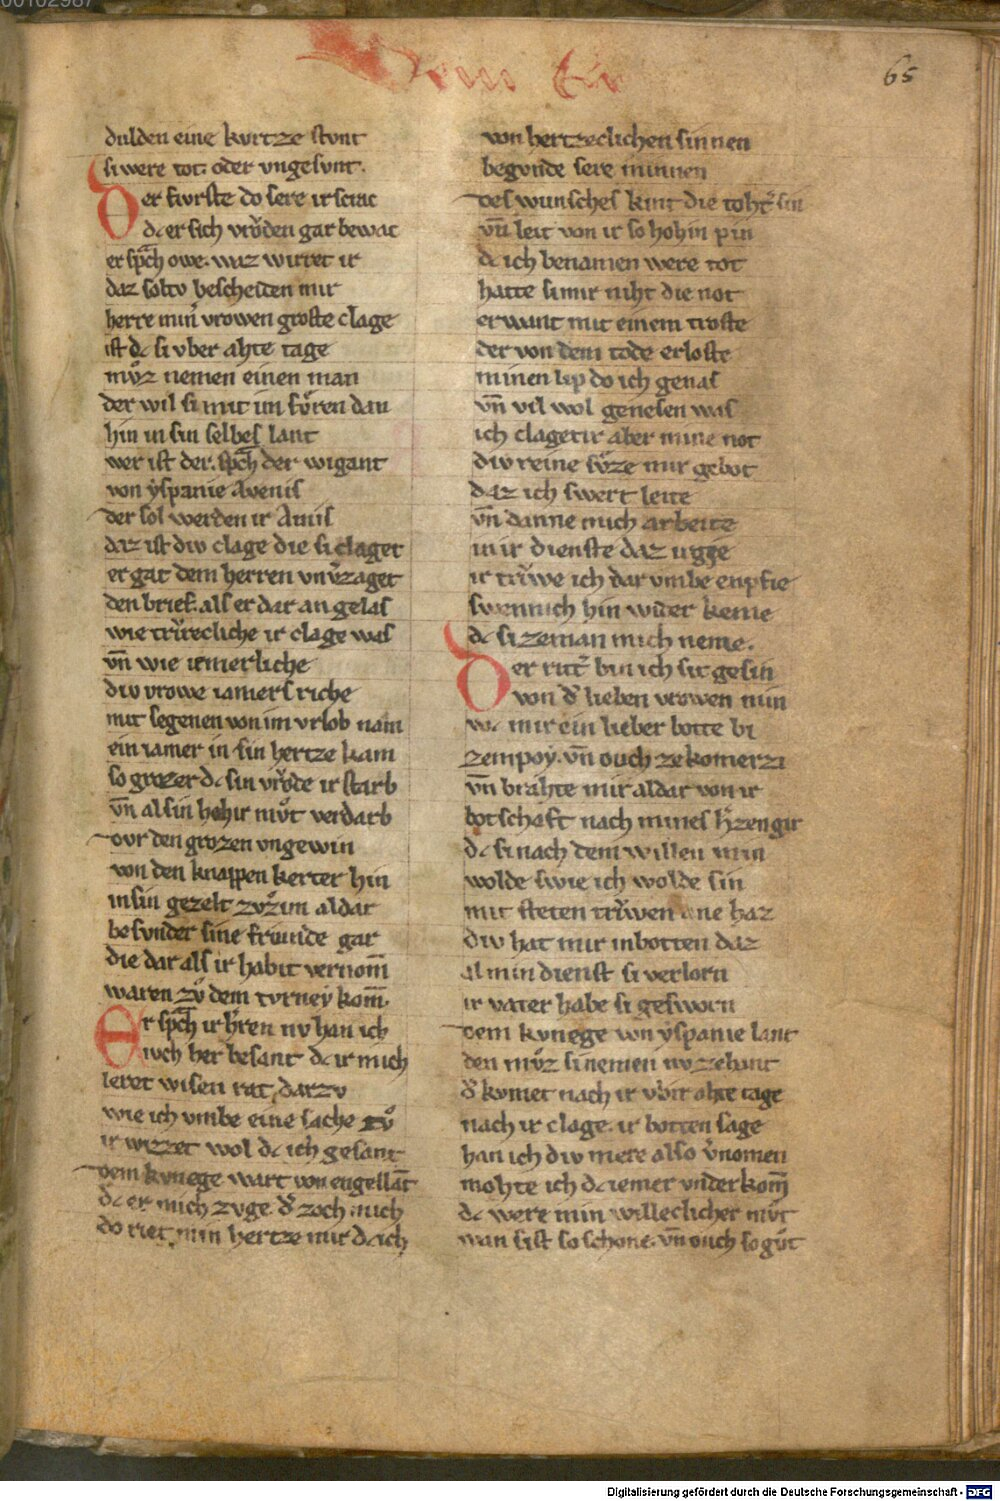 65
dulden eine kurtze stunt
si were tot. oder vngesunt.
Der furste do sere irsciac
dc er sich vrͦden gar bewac
er spͣch owe. waz wirret ir
daz soltv bescheiten mir
herre minͬ vrowen groste clage
ist dc si vber ahte tage
mvͦz nemen einen man
der wil si mit im fvͦren dan
hin in sin selbes lant
wer ist der. spͣch der wigant
von yspanie Avenis
der sol werden ir Amis
daz ist div clage die si claget
er gab dem herren vnvͤzaget
den brief. als er dar an gelas
wie trvrecliche ir clage was
vn̄ wie iemerliche
div vrowe iamers riche
mit segenen von im vrlob nam
ein iamer in sin hertze kam
so grozer dc sin vrͦde ir starb
vn̄ al sin hohir mvͦt verdarb
dvr den grozen vngewin
von den knappen kerter hin
in sin gezelt zvͦzim aldar
besvnder sine friunde gar
die dar als ir habit vernom̄
waren zvͦ dem tvrney kom̄.
Er spͣch ir hͬren nv han ich
iuch her besant dc ir mich
leret wisen rat, darzv
wie ich vmbe eine sache tvͦ
ir wizzet wol dc ich gesant
dem kvnege wart von engellāt
dc er mich zvge. dͬ zoch mich
do riet min hertze mir dc ich
von hertzeclichen sinnen
begvnde sere minnen
des wunsches kint die tohtͬ sin
vn̄ leit von ir so hohin pin
dc ich benamen were tot
hatte si mir niht die not
erwant mit einem troste
der von dem tode erloste
minen lip do ich genas
vn̄ vil wol genesen was
ich clagetir aber mine not
div reine svͦze mir gebot
daz ich swert leite
vn̄ danne mich arbeite
in ir dienste daz irgie
ir trvwe ich dar vmbe enpfie
swennich hin wider keme
dc si zeman mich neme.
Der rittͬ bin ich sit gesin
von dͬ lieben vrowen min
wc mir ein lieber botte bi
zempoy. vn̄ ouch ze komerzi
vn̄ brahte mir aldar von ir
botschaft nach mines hͬzen gir
dc si nach dem willen min
wolde swie ich wolde sin
mit steten trvwen ane haz
div hat mir inbotten daz
al min dienst si verlorn
ir vater habe si gesworn
dem kvnege von yspanie lant
den mvͦz si nemen nv zehant
dͬ kvmet nach ir vbir ahte tage
nach ir clage. ir botten sage
han ich div mere also vͬnomen
mohte ich dc iemer vnderkom̄
dc were min willeclicher mvͦt
wan si ist so schone. vn̄ ouch so gvͦt
Digitalisierung gefördert durch die Deutsche Forschungsgemeinschaft - DFG